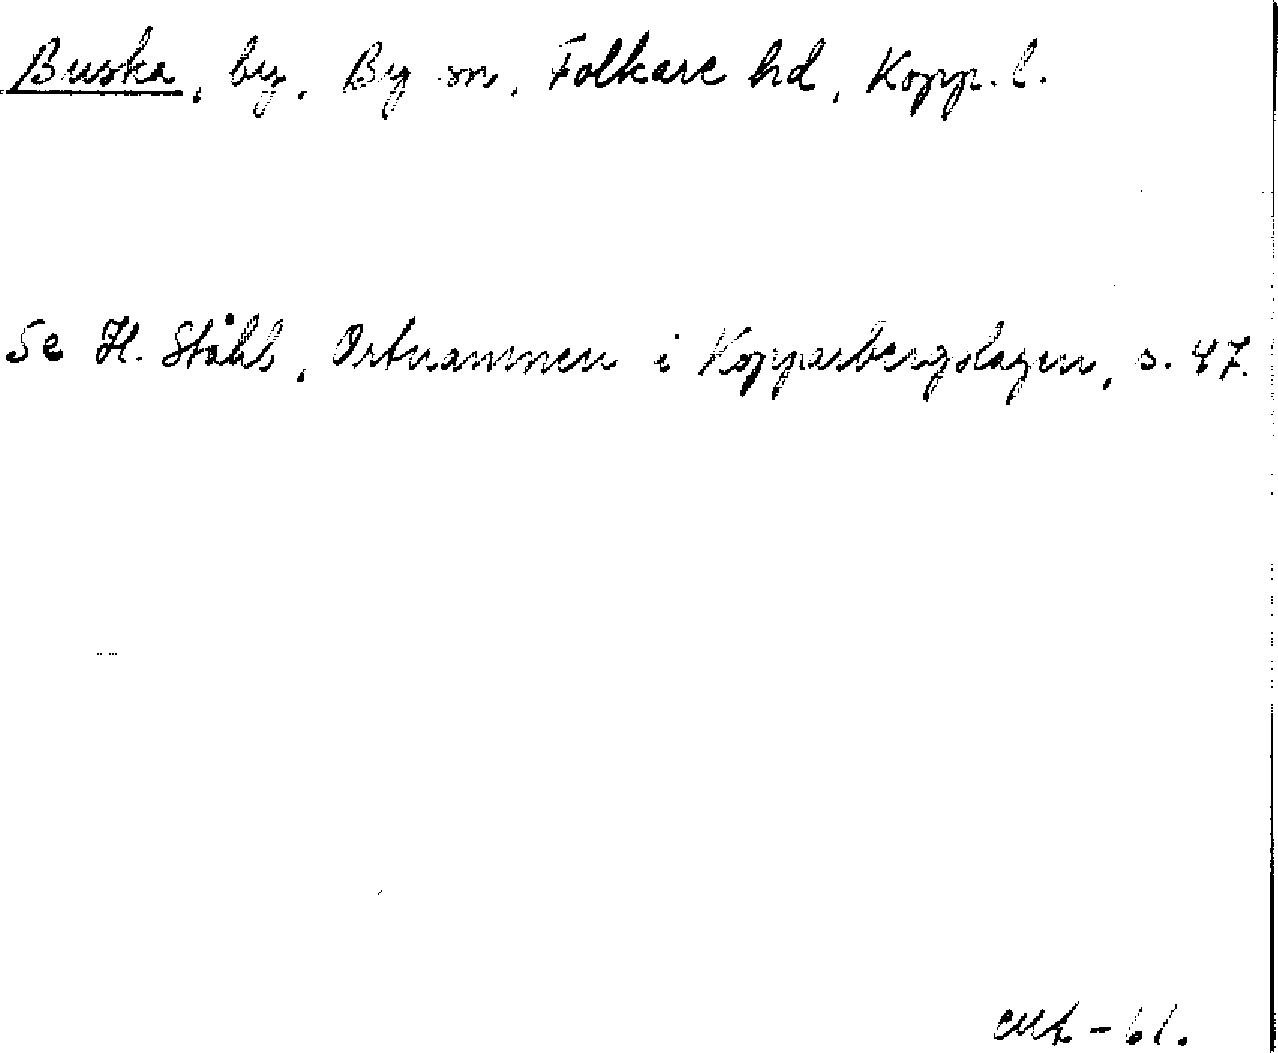 Buska, by, By sn, Folkare hd, Kopp. l.
Se H. Ståhl, Ortnamnen i Kopparbergslagen, s. 47.
-61.